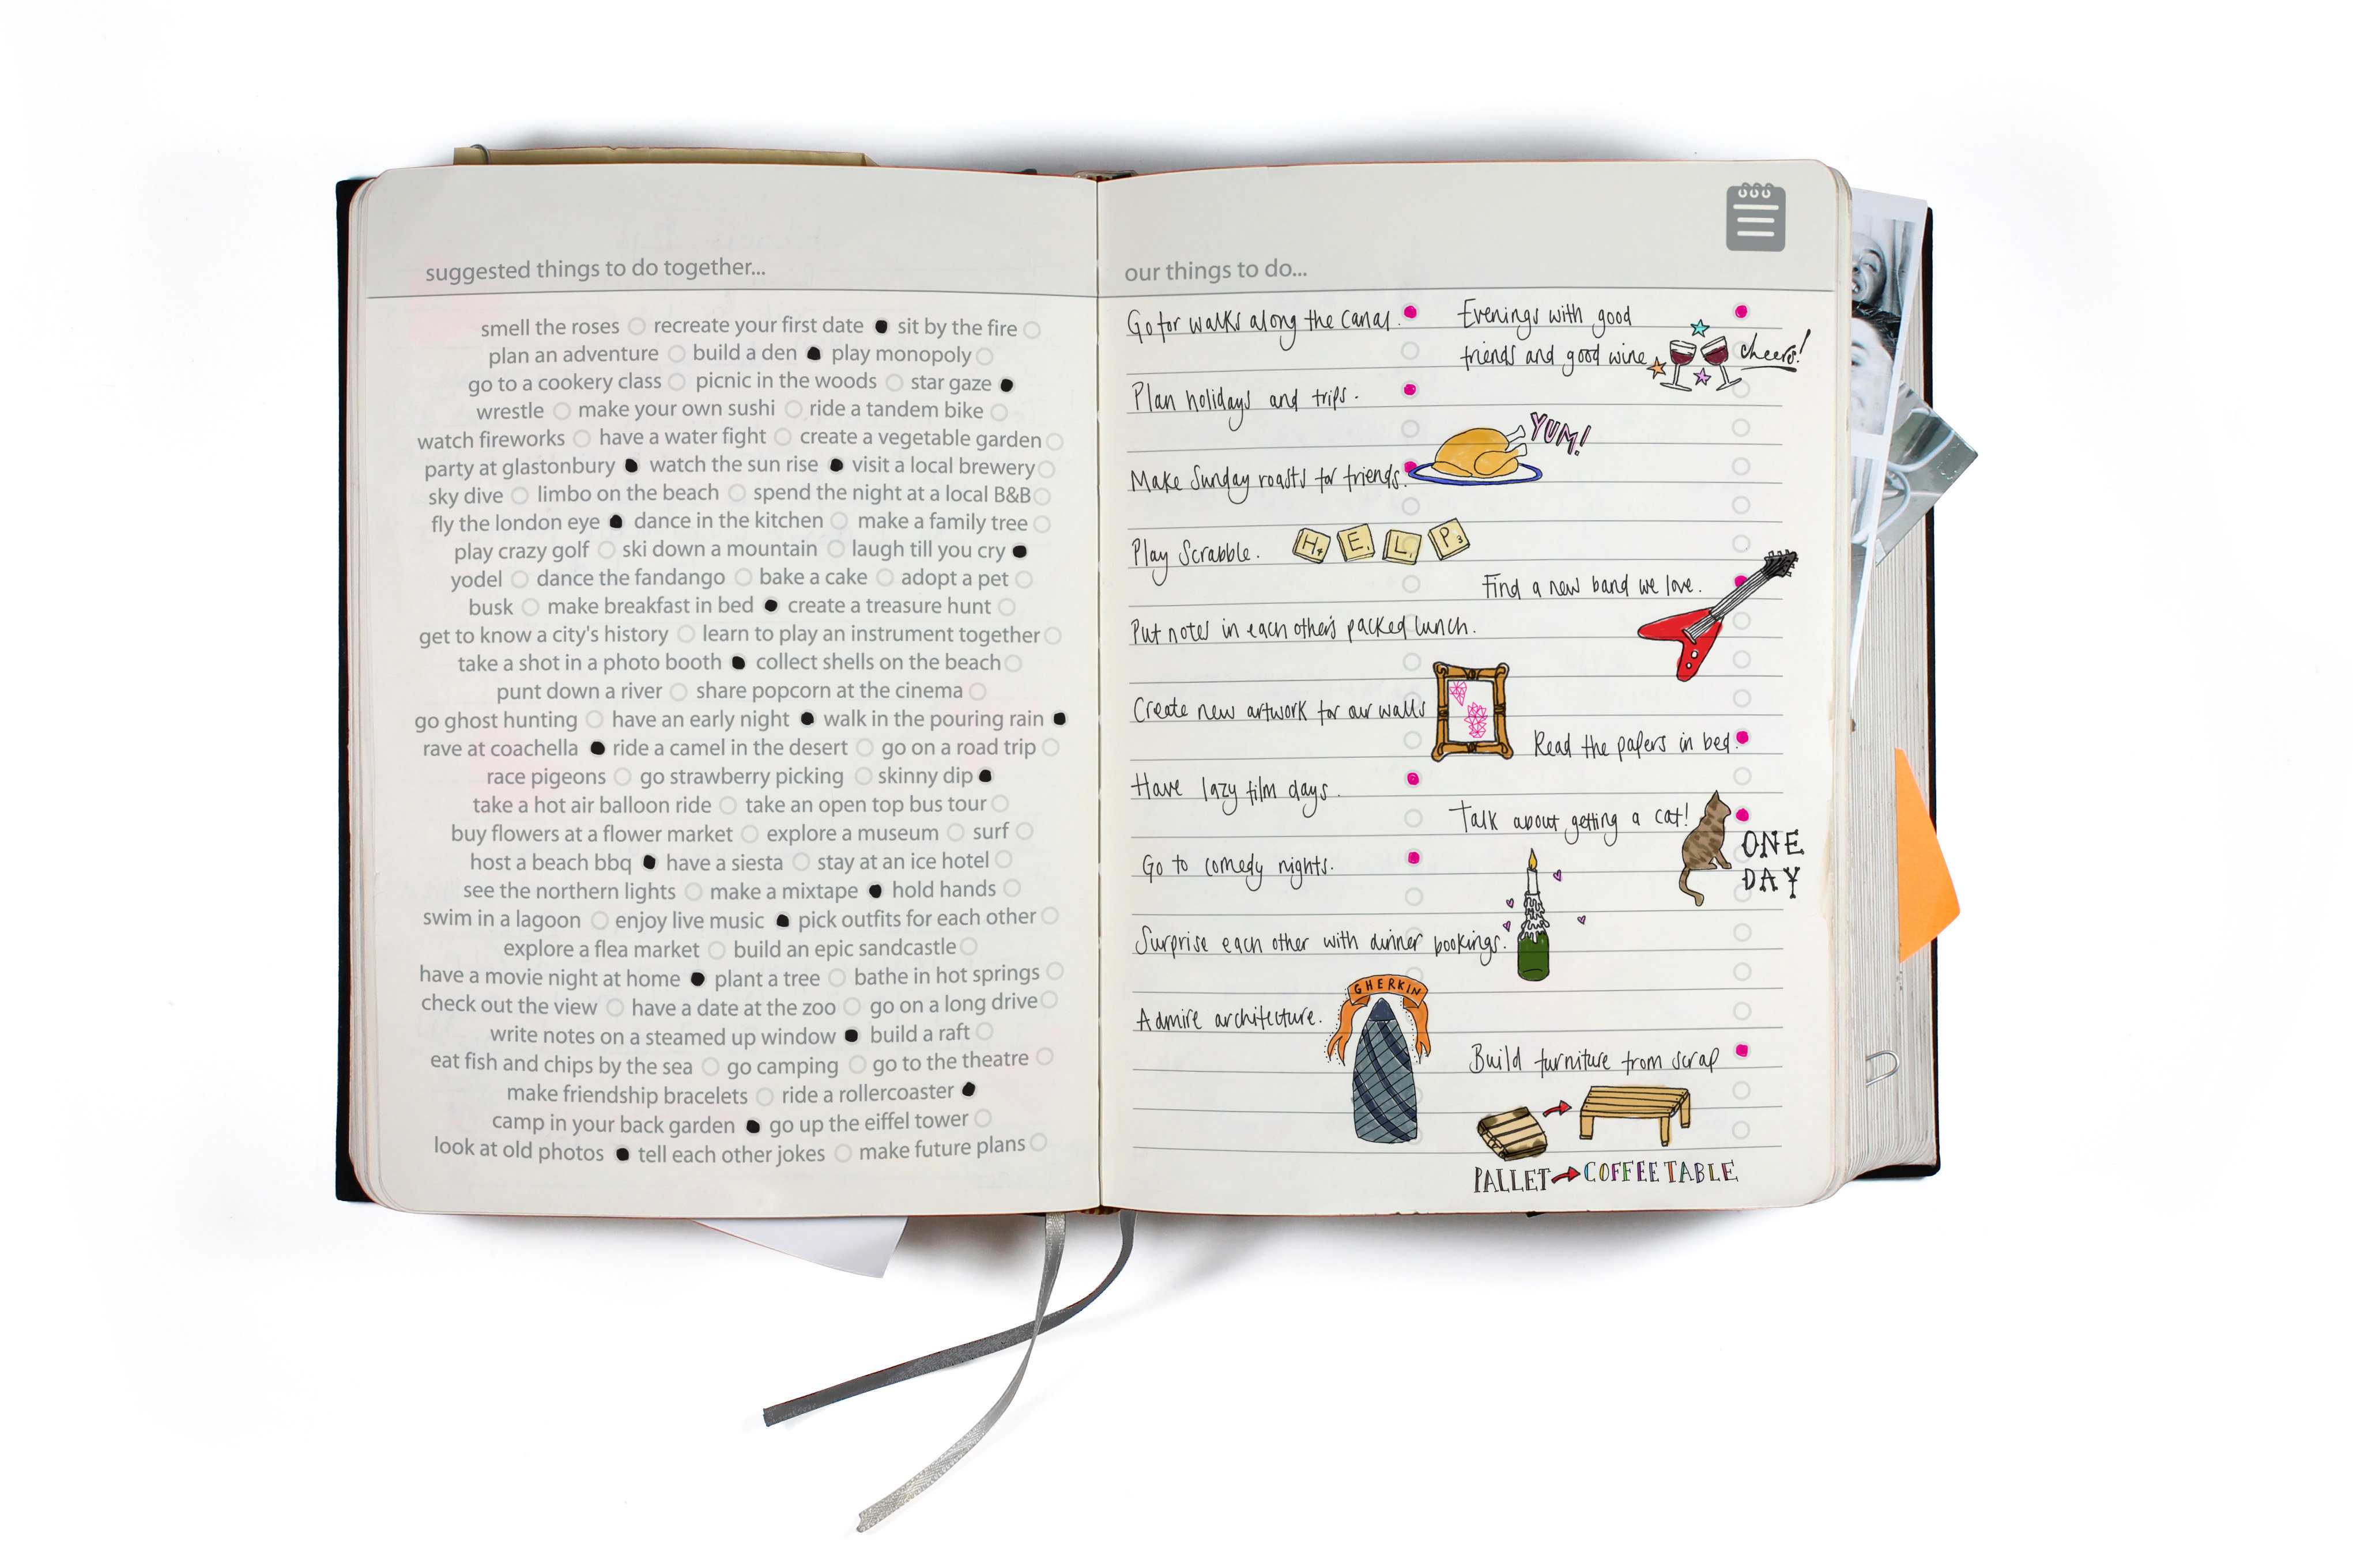 suggested things to do together...
smell the roses recreate your first date sit by the fire
plan an adventure build a den play monopoly
go to a cookery class picnic in the woods star gaze
wrestle make your own sushi ride a tandem bike
watch fireworks have a water fight create a vegetable garden
party at glastonbury watch the sun rise visit a local brewery
sky dive limbo on the beach spend the night at a local B&B
fly the london eye dance in the kitchen make a family tree
play crazy golf ski down a mountain laugh till you cry
yodel dance the fandango bake a cake adopt a pet
busk make breakfast in bed create a treasure hunt
get to know a city's history learn to play an instrument together
take a shot in a photo booth collect shells on the beach
punt down a river share popcorn at the cinema
go ghost hunting have an early night walk in the pouring rain
rave at coachella ride a camel in the desert go on a road trip
race pigeons go strawberry picking skinny dip
take a hot air balloon ride take an open top bus tour
buy flowers at a flower market explore a museum surf
host a beach bbq have a siesta stay at an ice hotel
see the northern lights make a mixtape hold hands
swim in a lagoon enjoy live music pick outfits for each other
explore a flea market build an epic sandcastle
have a movie night at home plant a tree bathe in hot springs
check out the view have a date at the zoo go on a long drive
write notes on a steamed up window build a raft
eat fish and chips by the sea go camping go to the theatre
make friendship bracelets ride a rollercoaster
camp in your back garden go up the eiffel tower
look at old photos tell each other jokes make future plans
our things to do...
Go for walks along the canal.
Plan holidays and trips.
Make Sunday roasts for friends.
YUM!
Play Scrabble.
H4 E1 L1 P3
Put notes in each other's packed lunch.
Create new artwork for our walls
Have lazy film days.
Go to comedy nights.
Surprise each other with dinner bookings.
Admire architecture.
GHERKIN
Evenings with good
friends and good wine
cheers!
Find a new band we love.
Read the papers in bed.
Talk about getting a cat!
ONE
DAY
Build furniture from scrap
PALLET → COFFEE TABLE